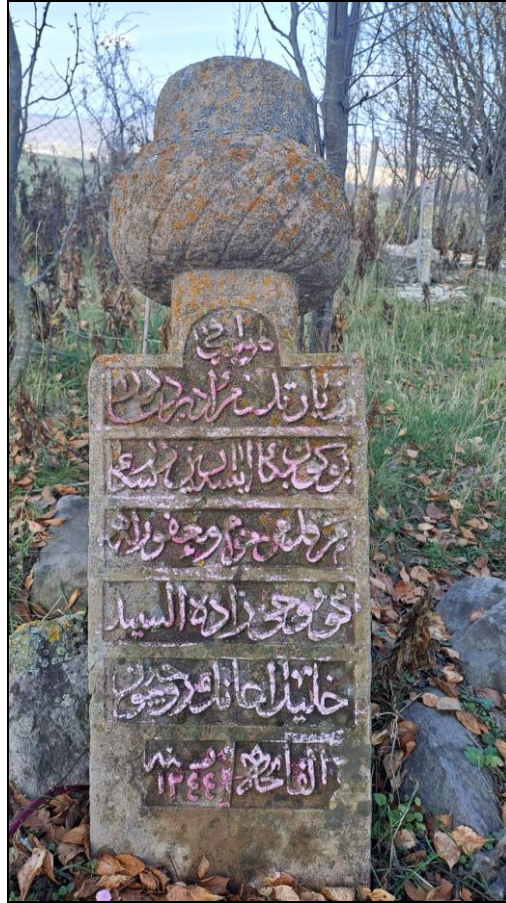 هوالباقي
زيارتدن مراد بر دعادر
بو كون بكا ايسه يارين سكا
مرحوم و مغفور له
زاده السيد
خليل اغانك روحيچون
الفاتحه سنه ١٢٤٤